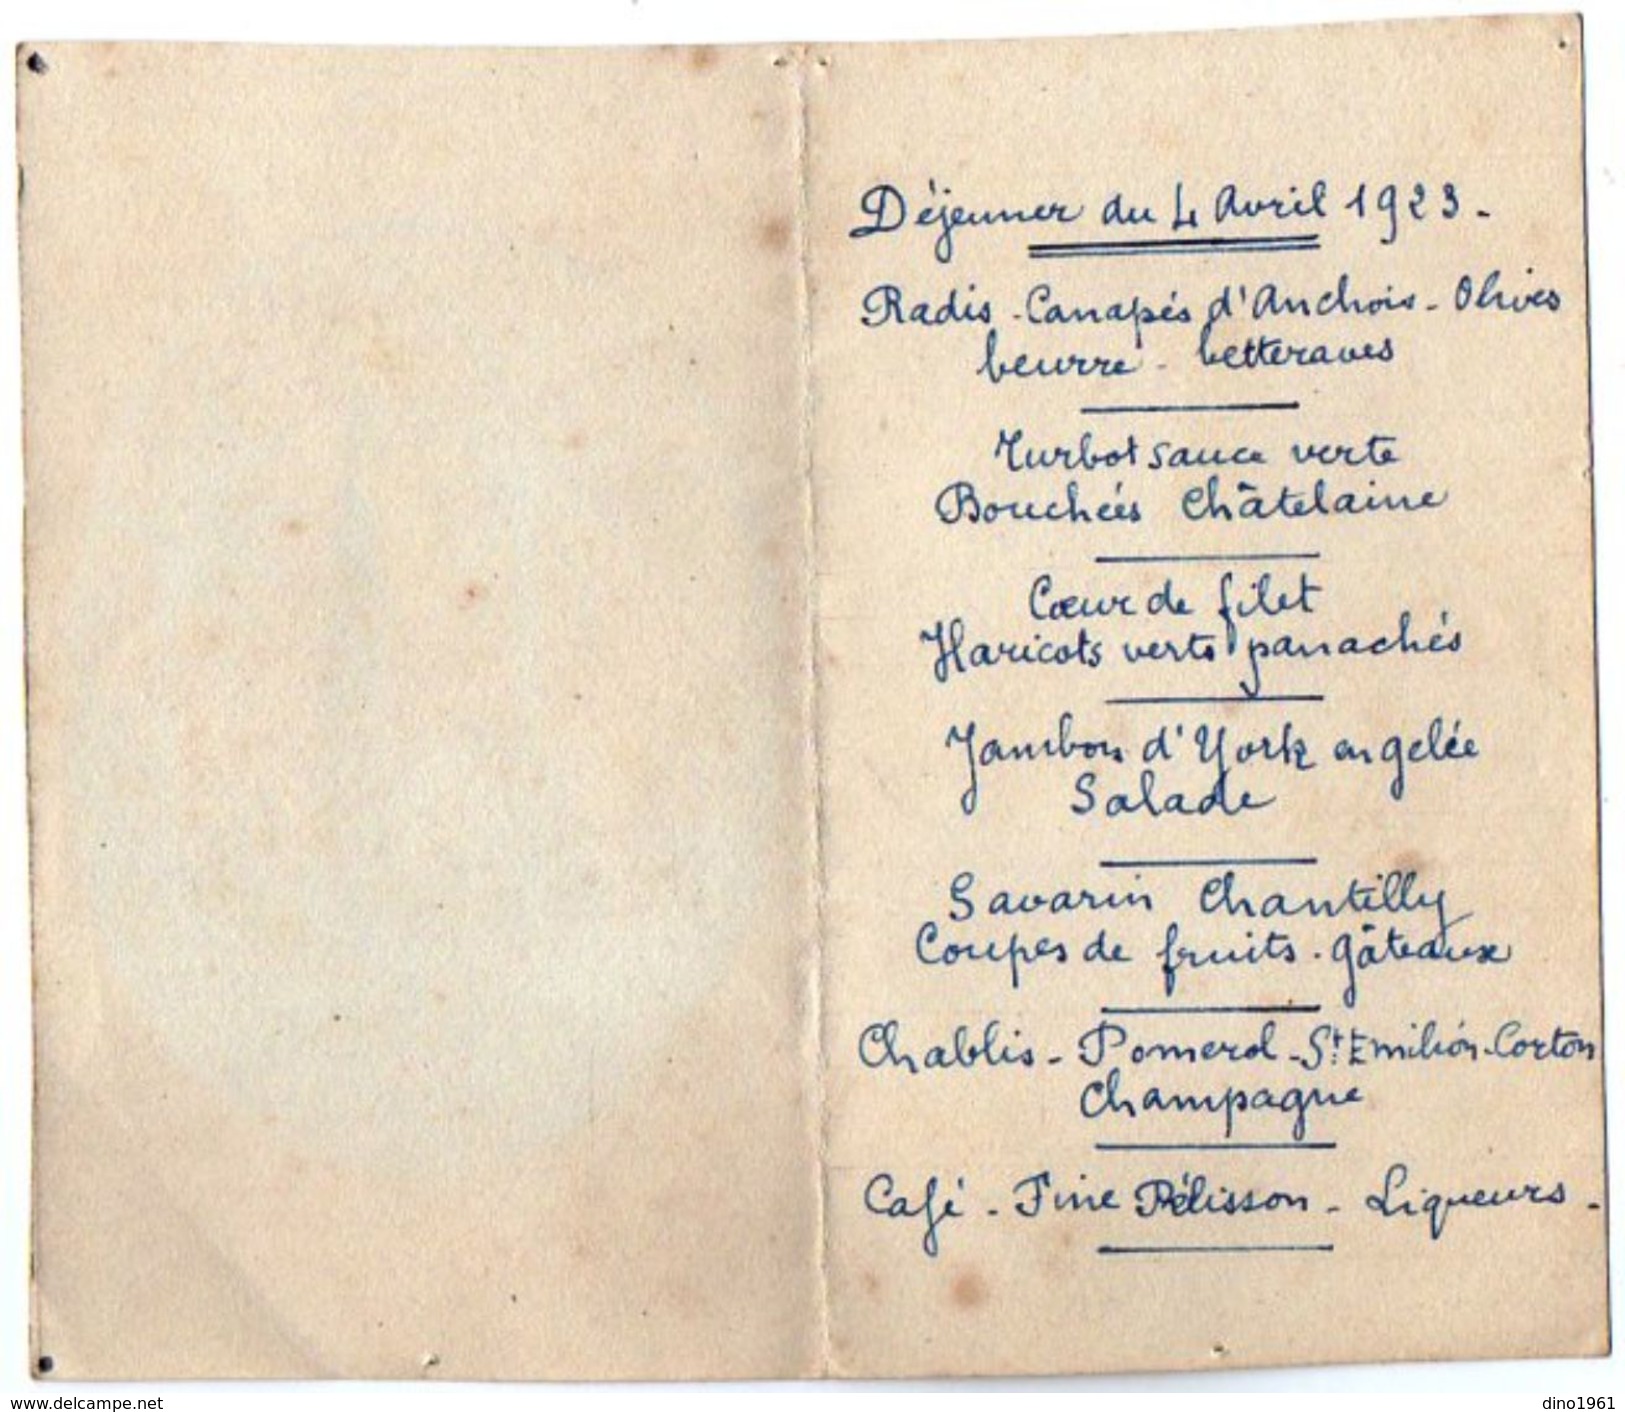 Déjeuner du 4 Avril 1923 -
Radis - Canapés d'Anchois - Olives
beurre - betteraves
Turbot sauce verte
Bouchées Châtelaine
Cœur de filet
Haricots verts panachés
Jambon d'York en gelée
Salade
Savarin Chantilly
Coupes de fruits - gâteaux
Chablis - Pomerol - St Emilion - Corton
Champagne
Café - Fine Pélisson - Liqueurs -
delcampe.net
dino1961